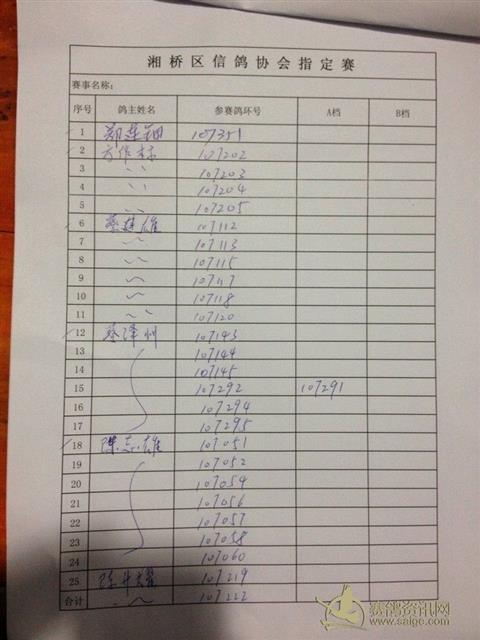 湘桥区信鸽协会指定赛
赛事名称：
序号 鸽主姓名 参赛鸽环号 A档 B档
1 107351
2 方作林 107202
3 〃 107203
4 〃 107204
5 〃 107205
6 蔡建雄 107112
7 〃 107113
8 〃 107115
9 〃 107117
10 〃 107118
11 〃 107120
12 蔡泽州 107143
13 107144
14 107145
15 107292 107291
16 107294
17 107295
18 陈志雄 107051
19 107052
20 107054
21 107056
22 107057
23 107058
24 107060
25 107219
合计 〃 107222
赛鸽资讯网
www.saige.com